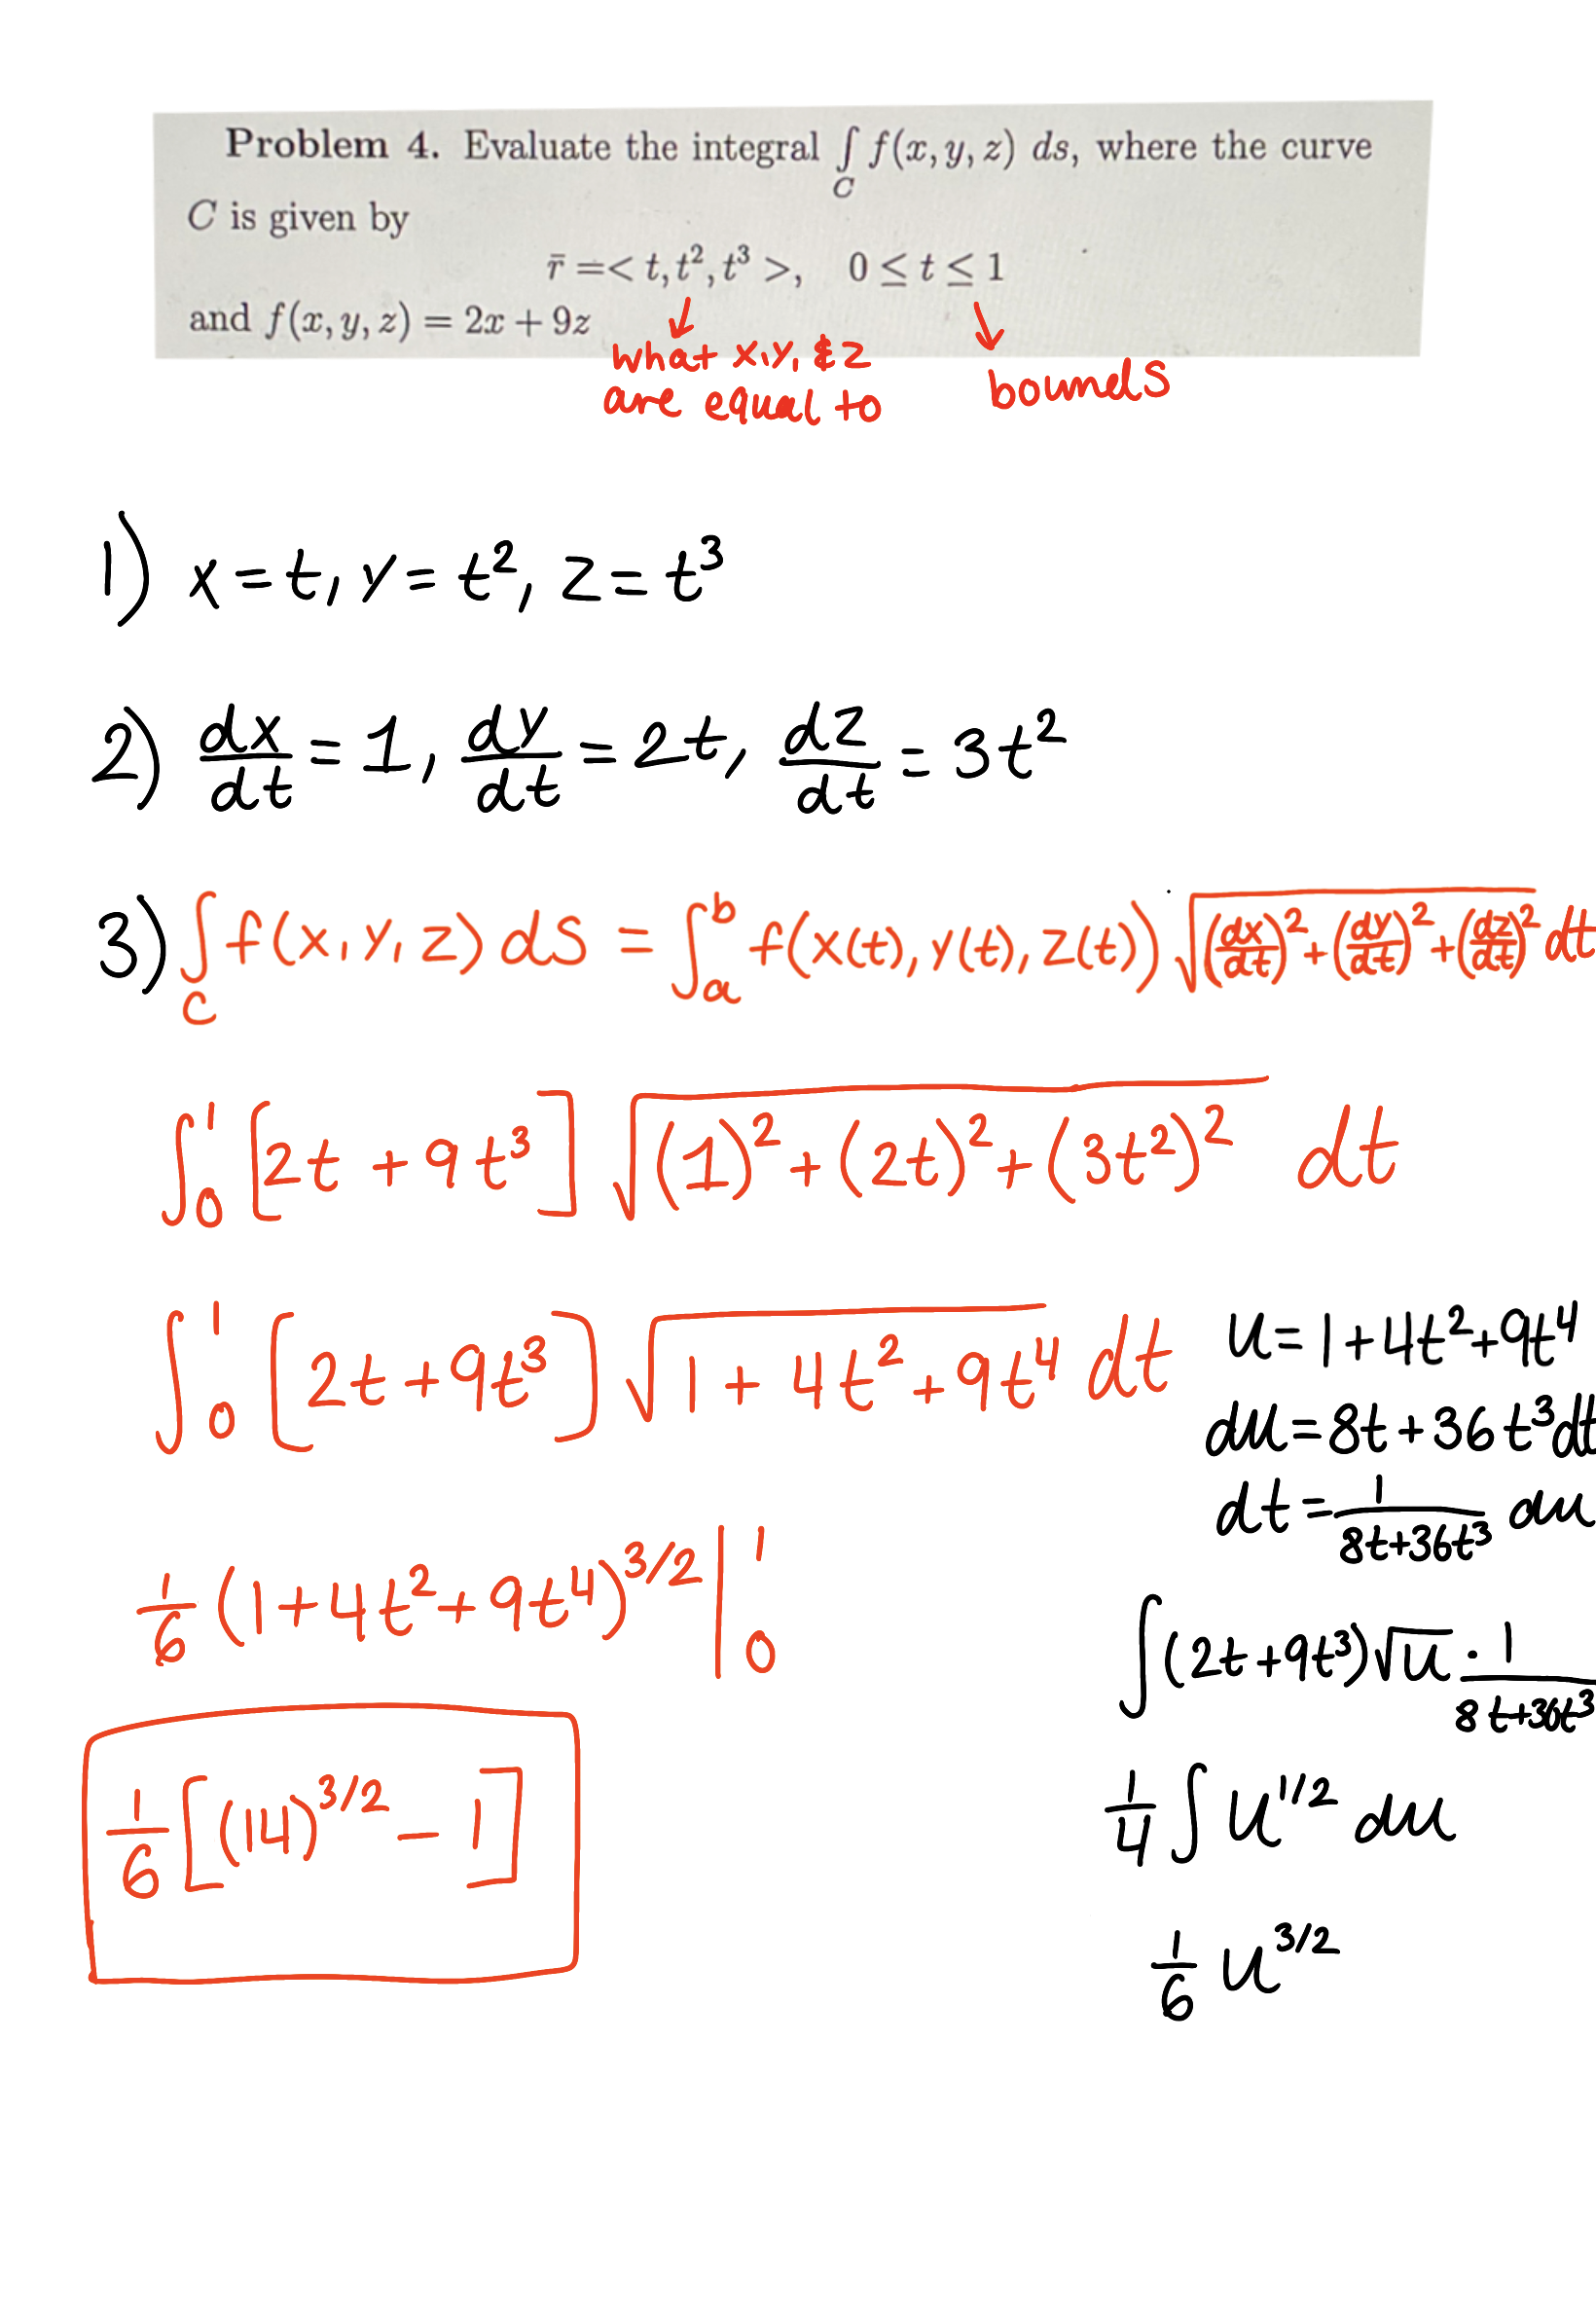 Problem 4. Evaluate the integral ∫_C f(x, y, z) ds, where the curve
C is given by
r̄ =< t, t², t³ >, 0 ≤ t ≤ 1
and f(x, y, z) = 2x + 9z
what x, y, & z
are equal to
bounds
1) x = t, y = t², z = t³
2) dx/dt = 1, dy/dt = 2t, dz/dt = 3t²
3) ∫_C f(x, y, z) dS = ∫_a^b f(x(t), y(t), z(t)) √((dx/dt)² + (dy/dt)² + (dz/dt)²) dt
∫_0^1 [2t + 9t³] √((1)² + (2t)² + (3t²)²) dt
∫_0^1 [2t + 9t³] √(1 + 4t² + 9t⁴) dt
1/6 (1 + 4t² + 9t⁴)^3/2 |_0^1
1/6 [(14)^3/2 − 1]
u = 1 + 4t² + 9t⁴
du = 8t + 36t³ dt
dt = 1/(8t+36t³) du
∫(2t + 9t³)√u · 1/(8t+36t³)
1/4 ∫ u^1/2 du
1/6 u^3/2